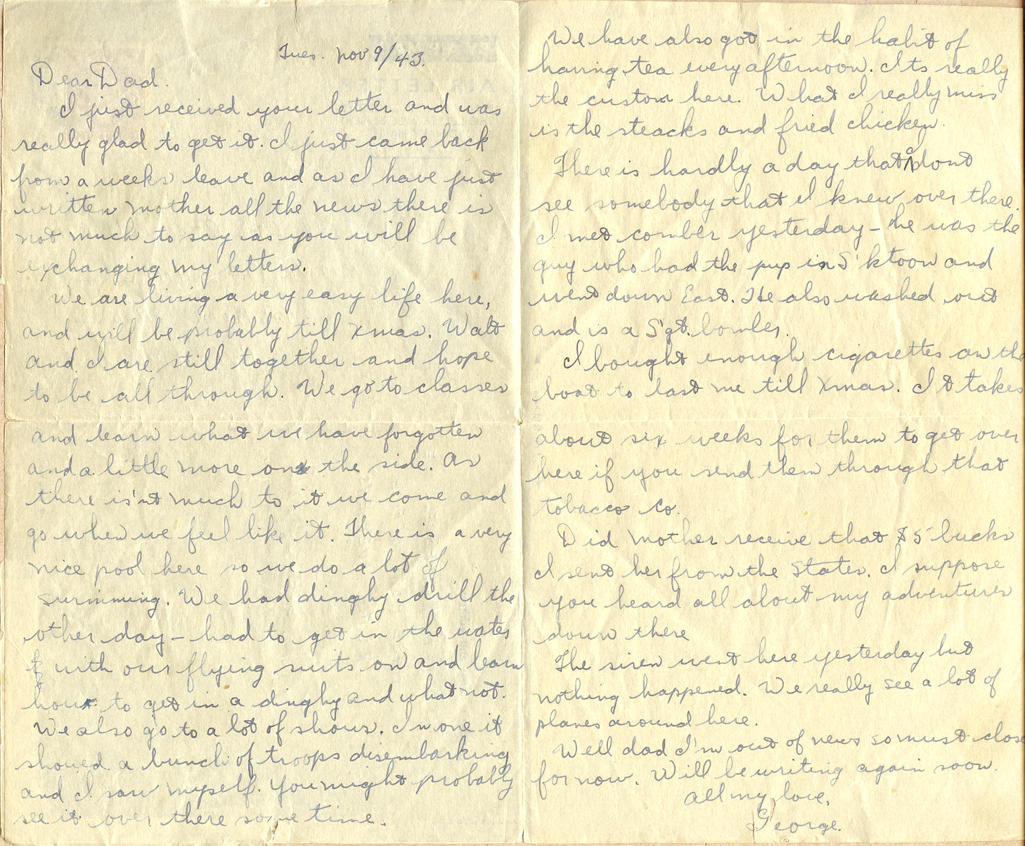 Tues. Nov 9/43.
Dear Dad.
I just received your letter and was
really glad to get it. I just came back
from a weeks leave and as I have just
written mother all the news there is
not much to say as you will be
exchanging my letters.
We are living a very easy life here,
and will be probably till Xmas. Walt
and I are still together and hope
to be all through. We go to classes
and learn what we have forgotten
and a little more on the side. As
there is'nt much to it we come and
go when we feel like it. There is a very
nice pool here so we do a lot of
swimming. We had dinghy drill the
other day – had to get in the water
with our flying suits on and learn
how to get in a dinghy and what not.
We also go to a lot of shows. In one it
showed a bunch of troops disembarking
and I saw myself. You might probably
see it over there some time.
We have also got in the habit of
having tea every afternoon. Its really
the custom here. What I really miss
is the steacks and fried chicken.
There is hardly a day that I dont
see somebody that I knew over there.
I met comber yesterday – he was the
guy who had the pup in S'ktoon and
went down East. He also washed out
and is a Sgt. bomber.
I bought enough cigarettes on the
boat to last me till Xmas. It takes
about six weeks for them to get over
here if you send them through that
tobacco Co.
Did mother receive that $5 bucks
I sent her from the States. I suppose
you heard all about my adventures
down there
The siren went here yesterday but
nothing happened. We really see a lot of
planes around here.
Well dad I'm out of news so must close
for now. Will be writing again soon.
All my love,
George.